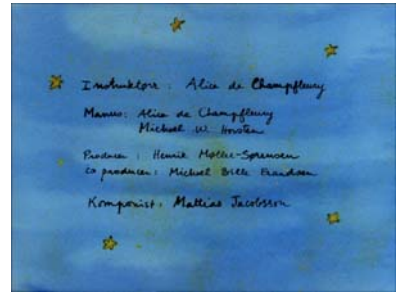 Instruktør: Alice de Champfleury
Manus: Alice de Champfleury
Michael W. Horsten
Producer: Henrik Møller-Sørensen
Co producer: Michael Bille Frandsen
Komponist: Mattias Jacobsson